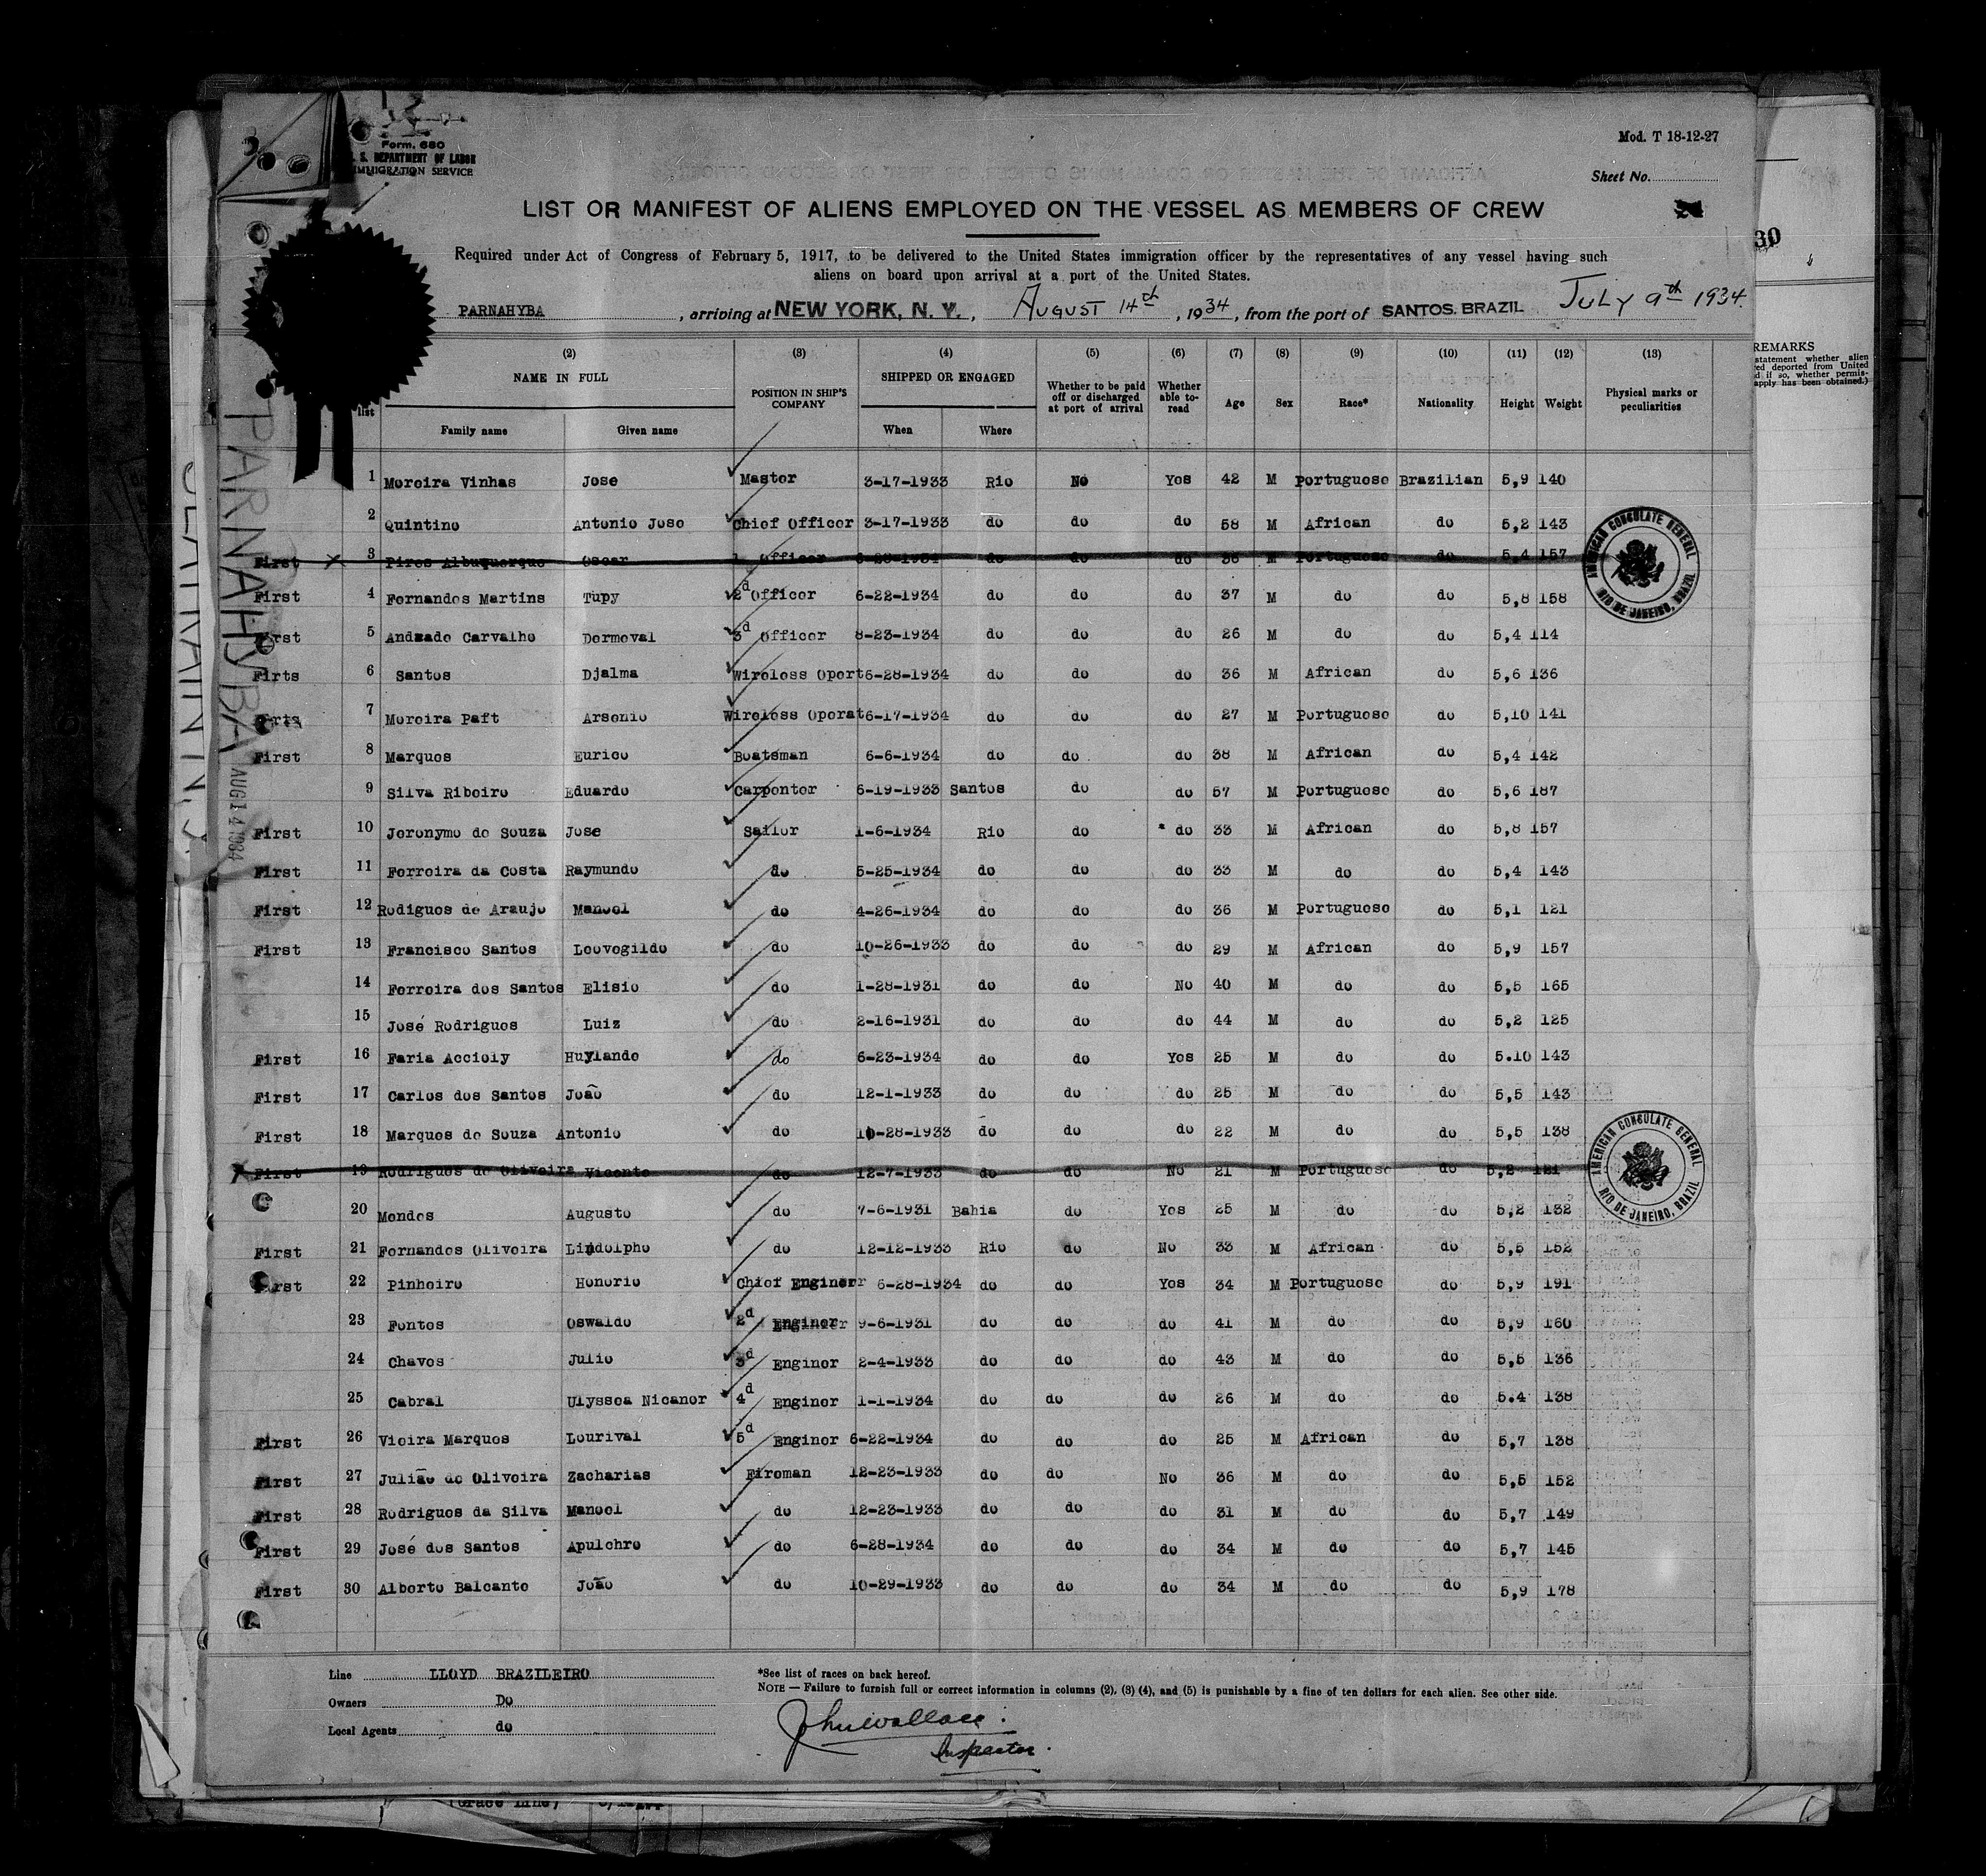 Form. 680
S. DEPARTMENT OF LABOR
IMMIGRATION SERVICE
Mod. T 18-12-27
Sheet No.
LIST OR MANIFEST OF ALIENS EMPLOYED ON THE VESSEL AS MEMBERS OF CREW
30
Required under Act of Congress of February 5, 1917, to be delivered to the United States immigration officer by the representatives of any vessel having such
aliens on board upon arrival at a port of the United States.
PARNAHYBA, arriving at NEW YORK, N. Y., August 14th, 1934, from the port of SANTOS. BRAZIL July 9th 1934.
(2) (3) (4) (5) (6) (7) (8) (9) (10) (11) (12) (13)
list NAME IN FULL Family name Given name POSITION IN SHIP'S COMPANY SHIPPED OR ENGAGED When Where Whether to be paid off or discharged at port of arrival Whether able to read Age Sex Race* Nationality Height Weight Physical marks or peculiarities
REMARKS
statement whether alien
ed deported from United
d if so, whether permis-
apply has been obtained.)
1 Moreira Vinhas Jose Master 3-17-1933 Rio No Yes 42 M Portuguese Brazilian 5,9 140
2 Quintino Antonio Jose Chief Officer 3-17-1933 do do do 58 M African do 5,2 143
First 3 Pires Albuquerque Oscar 1 Officer do do do 36 M Portuguese do 5,4 157
First 4 Fernandes Martins Tupy 2d Officer 6-22-1934 do do do 37 M do do 5,8 158
First 5 Andrade Carvalho Dermeval 3d Officer 8-23-1934 do do do 26 M do do 5,4 114
Firts 6 Santos Djalma Wireless Opert 6-28-1934 do do do 36 M African do 5,6 136
Firts 7 Moreira Paft Arsenio Wireless Operat 6-17-1934 do do do 27 M Portuguese do 5,10 141
First 8 Marques Eurico Boatsman 6-6-1934 do do do 38 M African do 5,4 142
9 Silva Ribeiro Eduardo Carpenter 6-19-1933 Santos do do 57 M Portuguese do 5,6 187
First 10 Jeronymo de Souza Jose Sailor 1-6-1934 Rio do do 33 M African do 5,8 157
First 11 Ferreira da Costa Raymundo do 5-25-1934 do do do 33 M do do 5,4 143
First 12 Rodigues de Araujo Manoel do 4-26-1934 do do do 36 M Portuguese do 5,1 121
First 13 Francisco Santos Leovegildo do 10-26-1933 do do do 29 M African do 5,9 157
14 Ferreira dos Santos Elisio do 1-28-1931 do do No 40 M do do 5,5 165
15 José Rodrigues Luiz do 2-16-1931 do do do 44 M do do 5,2 125
First 16 Faria Accioly Huylando do 6-23-1934 do do Yes 25 M do do 5.10 143
First 17 Carlos dos Santos João do 12-1-1933 do do do 25 M do do 5,5 143
First 18 Marques de Souza Antonio do 10-28-1933 do do do 22 M do do 5,5 138
First 19 Rodrigues de Oliveira Vicente do 12-7-1933 do do No 21 M Portuguese do 5,2 121
20 Mendes Augusto do 7-6-1931 Bahia do Yes 25 M do do 5,2 132
First 21 Fernandes Oliveira Lindolpho do 12-12-1933 Rio do No 33 M African do 5,5 152
First 22 Pinheiro Honorio Chief Enginerr 6-28-1934 do do Yes 34 M Portuguese do 5,9 191
23 Fontes Oswaldo 2d Enginer 9-6-1931 do do do 41 M do do 5,9 160
24 Chaves Julio 3d Enginer 2-4-1933 do do do 43 M do do 5,5 136
25 Cabral Ulyssea Nicanor 4d Enginer 1-1-1934 do do do 26 M do do 5.4 138
First 26 Vieira Marques Lourival 5d Enginer 6-22-1934 do do do 25 M African do 5,7 138
First 27 Julião de Oliveira Zacharias Fireman 12-23-1933 do do No 36 M do do 5,5 152
First 28 Rodrigues da Silva Manoel do 12-23-1933 do do do 31 M do do 5,7 149
First 29 José dos Santos Apulchro do 6-28-1934 do do do 34 M do do 5,7 145
First 30 Alberto Balcante João do 10-29-1933 do do do 34 M do do 5,9 178
AMERICAN CONSULATE GENERAL
RIO DE JANEIRO, BRAZIL
AMERICAN CONSULATE GENERAL
RIO DE JANEIRO, BRAZIL
PARNAHYBA
AUG 14 1934
Line LLOYD BRAZILEIRO
Owners Do
Local Agents do
*See list of races on back hereof.
NOTE — Failure to furnish full or correct information in columns (2), (3) (4), and (5) is punishable by a fine of ten dollars for each alien. See other side.
John Wallace
Inspector.